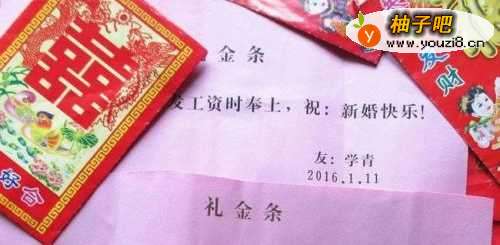 柚子吧
www.youzi8.cn
金条
发工资时奉上，祝：新婚快乐！
友：学青
2016.1.11
礼金条
囍
好合
发财